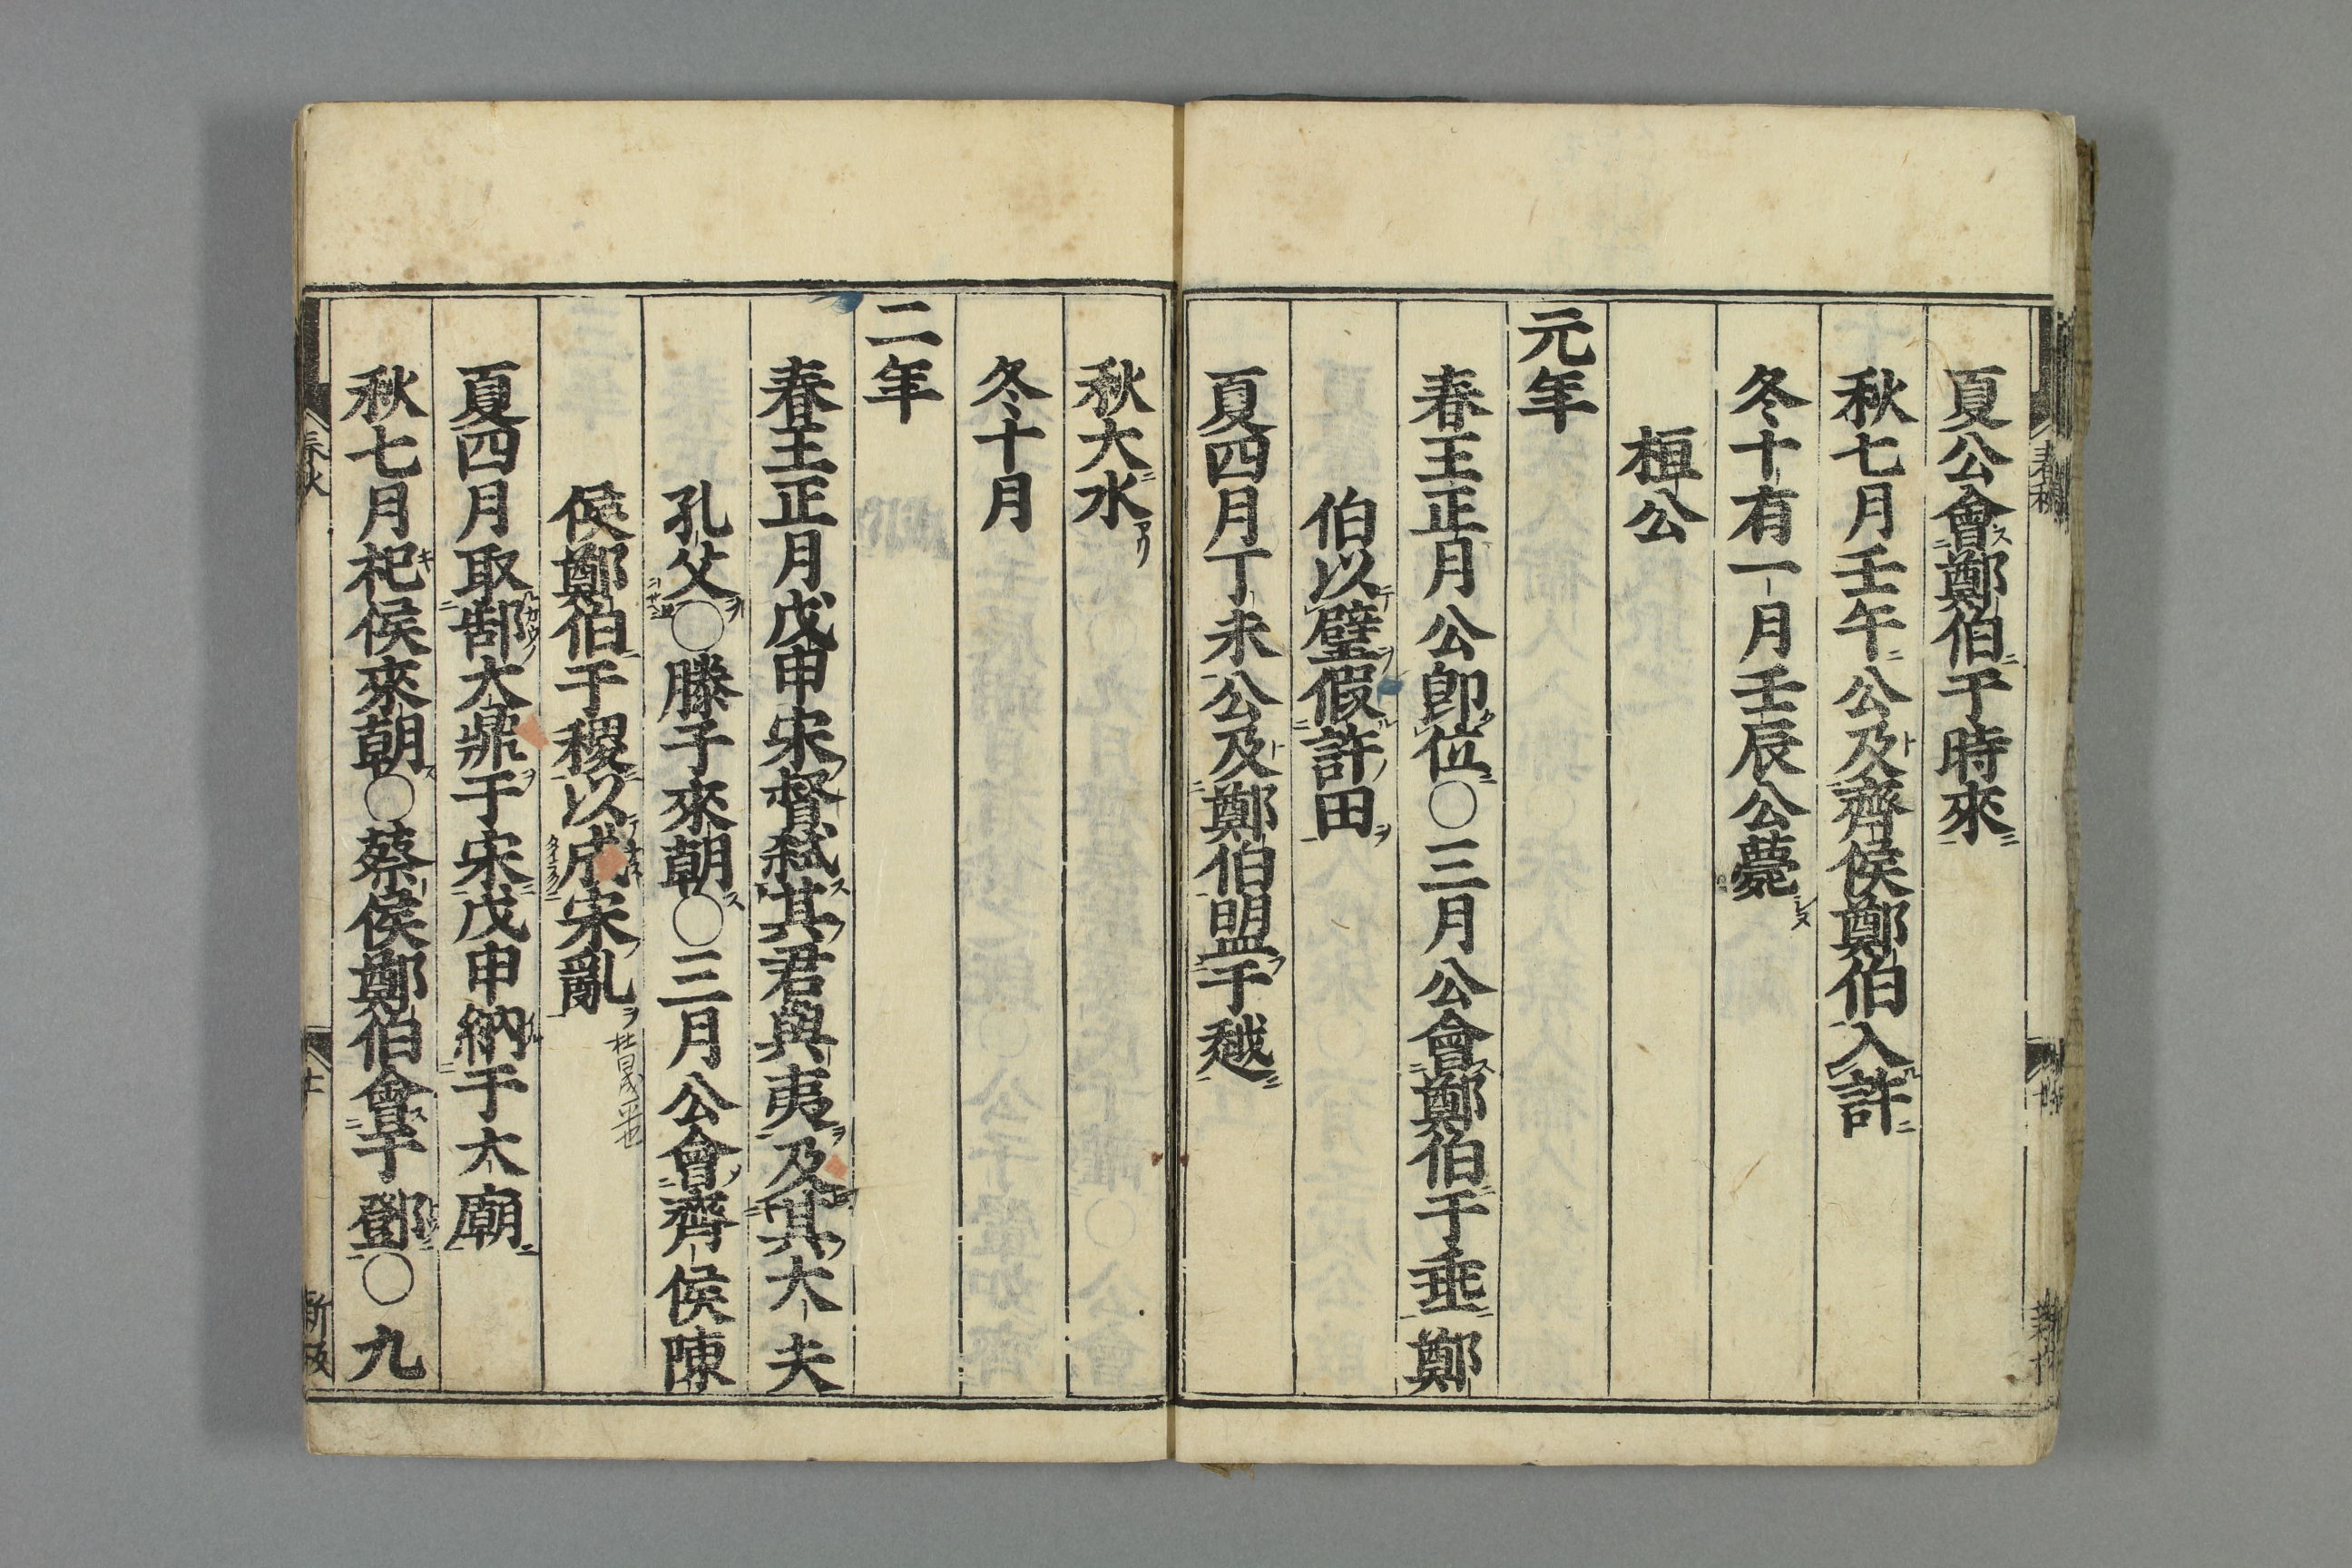 夏公會鄭伯于時來
秋七月壬午公及齊侯鄭伯入許
冬十有一月壬辰公薨
桓公
元年
春王正月公卽位〇三月公會鄭伯于垂鄭
伯以璧假許田
夏四月丁未公及鄭伯盟于越
秋大水
冬十月
二年
春王正月戊申宋督弑其君與夷及其大夫
孔父〇滕子來朝〇三月公會齊侯陳
侯鄭伯于稷以成宋亂
夏四月取郜大鼎于宋戊申納于大廟
秋七月杞侯來朝〇蔡侯鄭伯會于鄧〇九